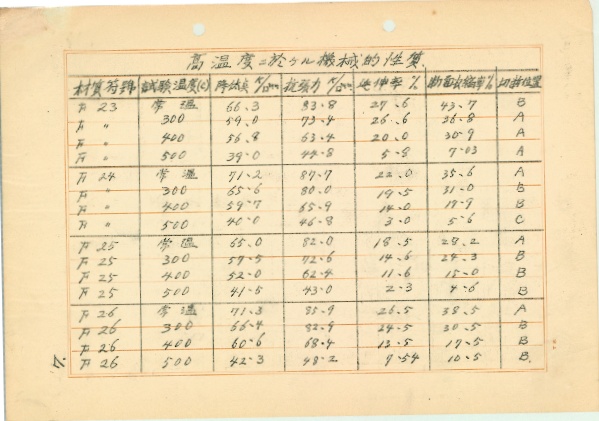 高温度ニ於ケル機械的性質
材質符號 試験温度(℃) 降伏点 K/□mm 抗張力 K/□mm 延伸率 % 断面収縮率 % 切断位置
23 常温 66.3 83.8 27.6 43.7 B
〃 300 59.0 73.4 26.6 26.8 A
〃 400 56.8 63.4 20.0 30.9 A
〃 500 39.0 44.8 5.8 7.03 A
24 常温 71.2 87.7 22.0 35.6 A
〃 300 65.6 80.0 19.5 31.0 B
〃 400 59.7 65.9 14.0 17.9 B
〃 500 40.0 46.8 3.0 5.6 C
25 常温 65.0 82.0 18.5 28.2 A
25 300 57.5 72.6 14.6 24.3 B
25 400 52.0 62.4 11.6 15.0 B
25 500 41.5 43.0 2.3 4.6 B
26 常温 71.3 85.9 26.5 38.5 A
26 300 66.4 82.9 24.5 30.5 B
26 400 60.6 68.4 13.5 17.5 B
26 500 42.3 48.2 7.54 10.5 B
7.